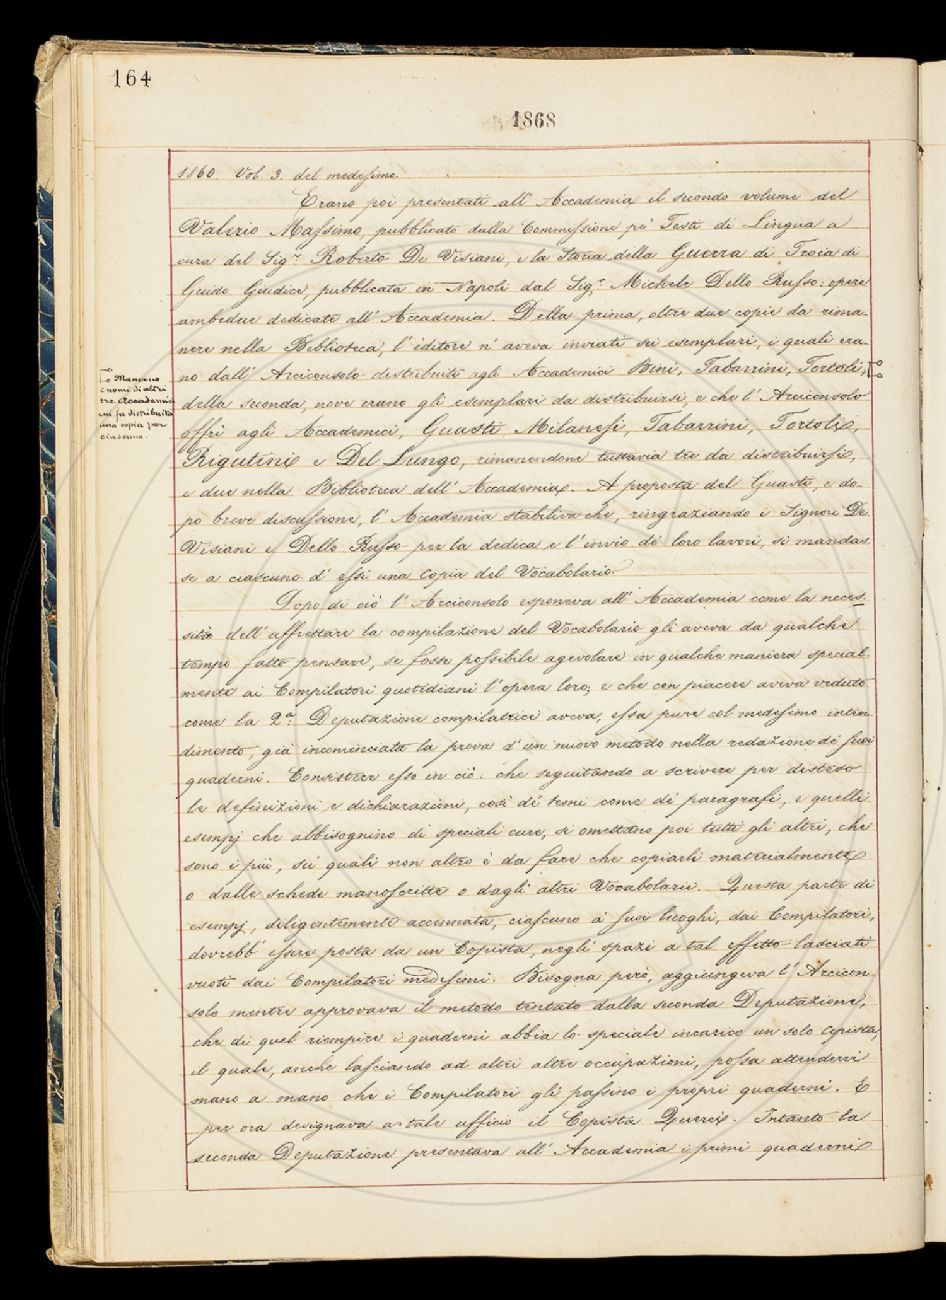 164
1868
1860. Vol. 3. del medesimo.
Erano poi presentati all' Accademia il secondo volume del
Valerio Massimo, pubblicato dalla Commissione pe' Testi di Lingua a
cura del Sig.r Roberto De Visiani, e la Storia della Guerra di Troia di
Guido Giudice, pubblicata in Napoli dal Sig.r Michele Dello Russo: opere
ambedue dedicate all' Accademia. Della prima, oltre due copie da rima-
nere nella Biblioteca, l' editore n' aveva inviati sei esemplari, i quali era-
no dall' Arciconsolo distribuiti agli Accademici Bini, Tabarrini, Tortoli,
Mancano
i nomi di altri
tre Accademici
cui fu distribuita
una copia per
ciascuno.
della seconda, nove erano gli esemplari da distribuirsi, e che l' Arciconsolo
offrì agli Accademici, Guasti Milanesi, Tabarrini, Tortoli,
Rigutini e Del Lungo, rimanendone tuttavia tre da distribuirsi,
e due nella Biblioteca dell' Accademia. A proposta del Guasti, e do-
po breve discussione, l' Accademia stabiliva che, ringraziando i Signori De
Visiani e Dello Russo per la dedica e l' invio de' loro lavori, si mandas
se a ciascuno d' essi una copia del Vocabolario.
Dopo di ciò l' Arciconsolo esponeva all' Accademia come la neces-
sità dell' affrettare la compilazione del Vocabolario gli aveva da qualche
tempo fatto pensare, se fosse possibile agevolare in qualche maniera special-
mente ai Compilatori quotidiani l' opera loro; e che con piacere aveva veduto
come la 2.a Deputazione compilatrice aveva, essa pure col medesimo inten-
dimento, già incominciata la prova d' un nuovo metodo nella redazione de' suoi
quaderni. Consistere esso in ciò: che seguitando a scrivere per disteso
le definizioni e dichiarazioni, così de' temi come de' paragrafi, e quelli
esempj che abbisognino di speciali cure, si omettano poi tutti gli altri, che
sono i più, sui quali non altro è da fare che copiarli materialmente
o dalle schede manoscritte o dagli altri Vocabolarii. Questa parte di
esempj, diligentemente accennata, ciascuno a' suoi luoghi, dai Compilatori,
dovrebb' essere posta da un Copista, negli spazi a tal effetto lasciati
vuoti dai Compilatori medesimi. Bisogna però, aggiungeva l' Arcicon-
solo mentre approvava il metodo tentato dalla seconda Deputazione,
che di quel riempire i quaderni abbia lo speciale incarico un solo copista,
il quale, anche lasciando ad altri altre occupazioni, possa attendervi
mano a mano che i Compilatori gli passino i propri quaderni. E
per ora designava a tale ufficio il Copista Querci. Intanto la
seconda Deputazione presentava all' Accademia i primi quaderni